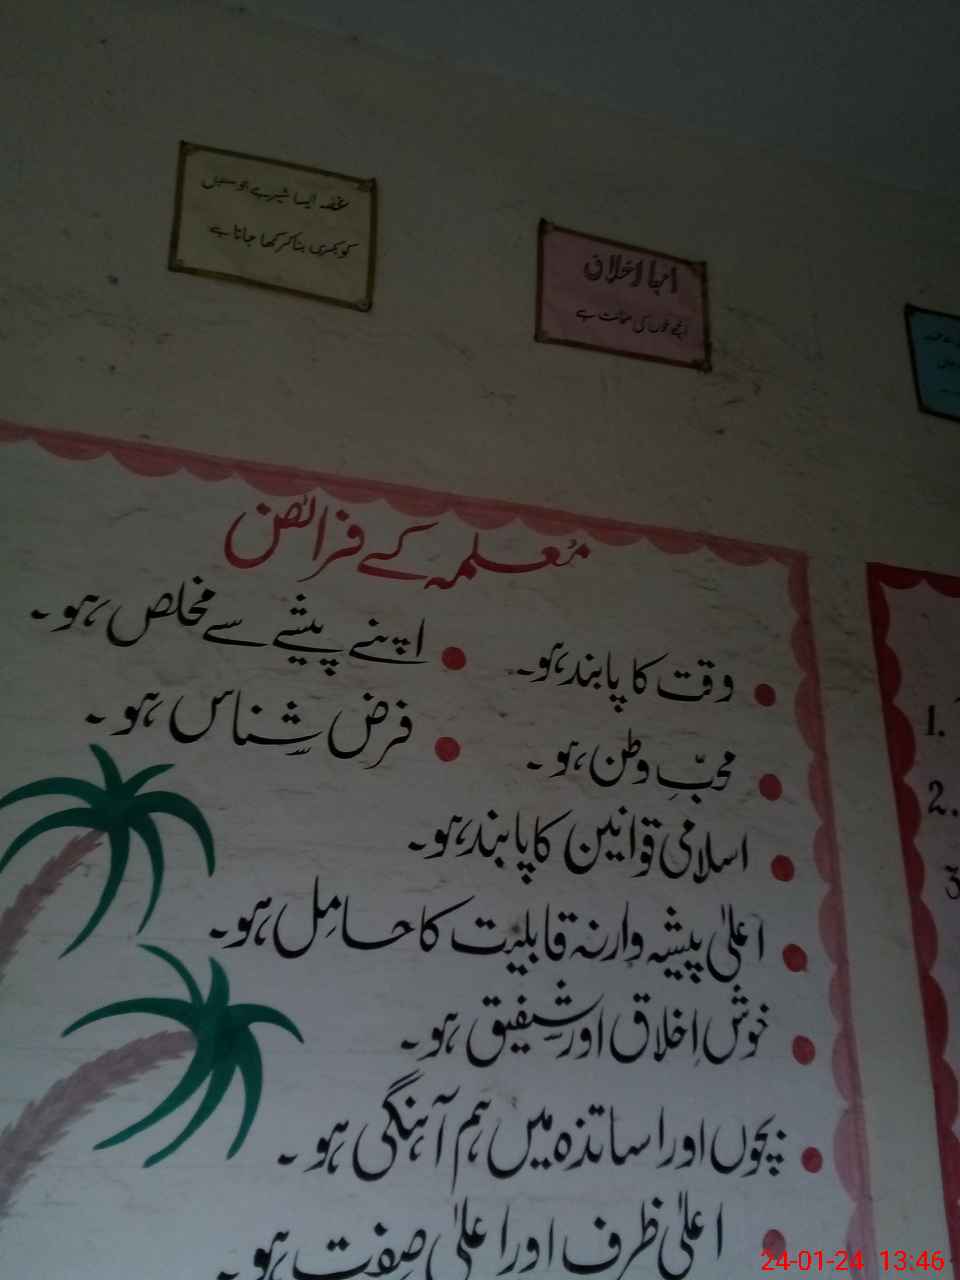 غصہ ایسا شیر ہے جو
کو بکری بنا کر کھا جاتا ہے
اچھا اخلاق
کی ضمانت ہے
معلمہ کے فرائض
وقت کا پابند ہو۔ اپنے پیشے سے مخلص ہو۔
محبِّ وطن ہو۔ فرض شناس ہو۔
اسلامی قوانین کا پابند ہو۔
اعلیٰ پیشہ وارنہ قابلیت کا حامِل ہو۔
خوش اِخلاق اور شفیق ہو۔
بچوں اور اساتذہ میں ہم آہنگی ہو۔
اعلیٰ ظرف اور اعلیٰ صِفت ہو۔
1.
2.
3
24-01-24 13:46